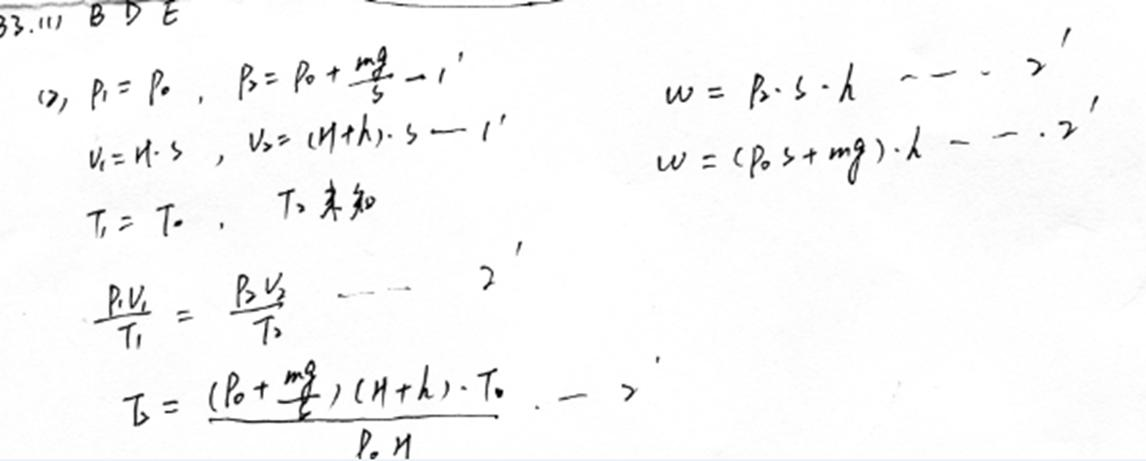 33.(1) B D E
(2), P₁ = P₀ , P₂ = P₀ + mg/s — 1'
V₁ = H·s , V₂ = (H+h)·s — 1'
T₁ = T₀ , T₂ 未知
P₁V₁/T₁ = P₂V₂/T₂ —— 2'
T₂ = (P₀ + mg/s)(H+h)·T₀/P₀H . — 2'
W = P₂·s·h ——· 2'
W = (P₀s + mg)·h ——·2'